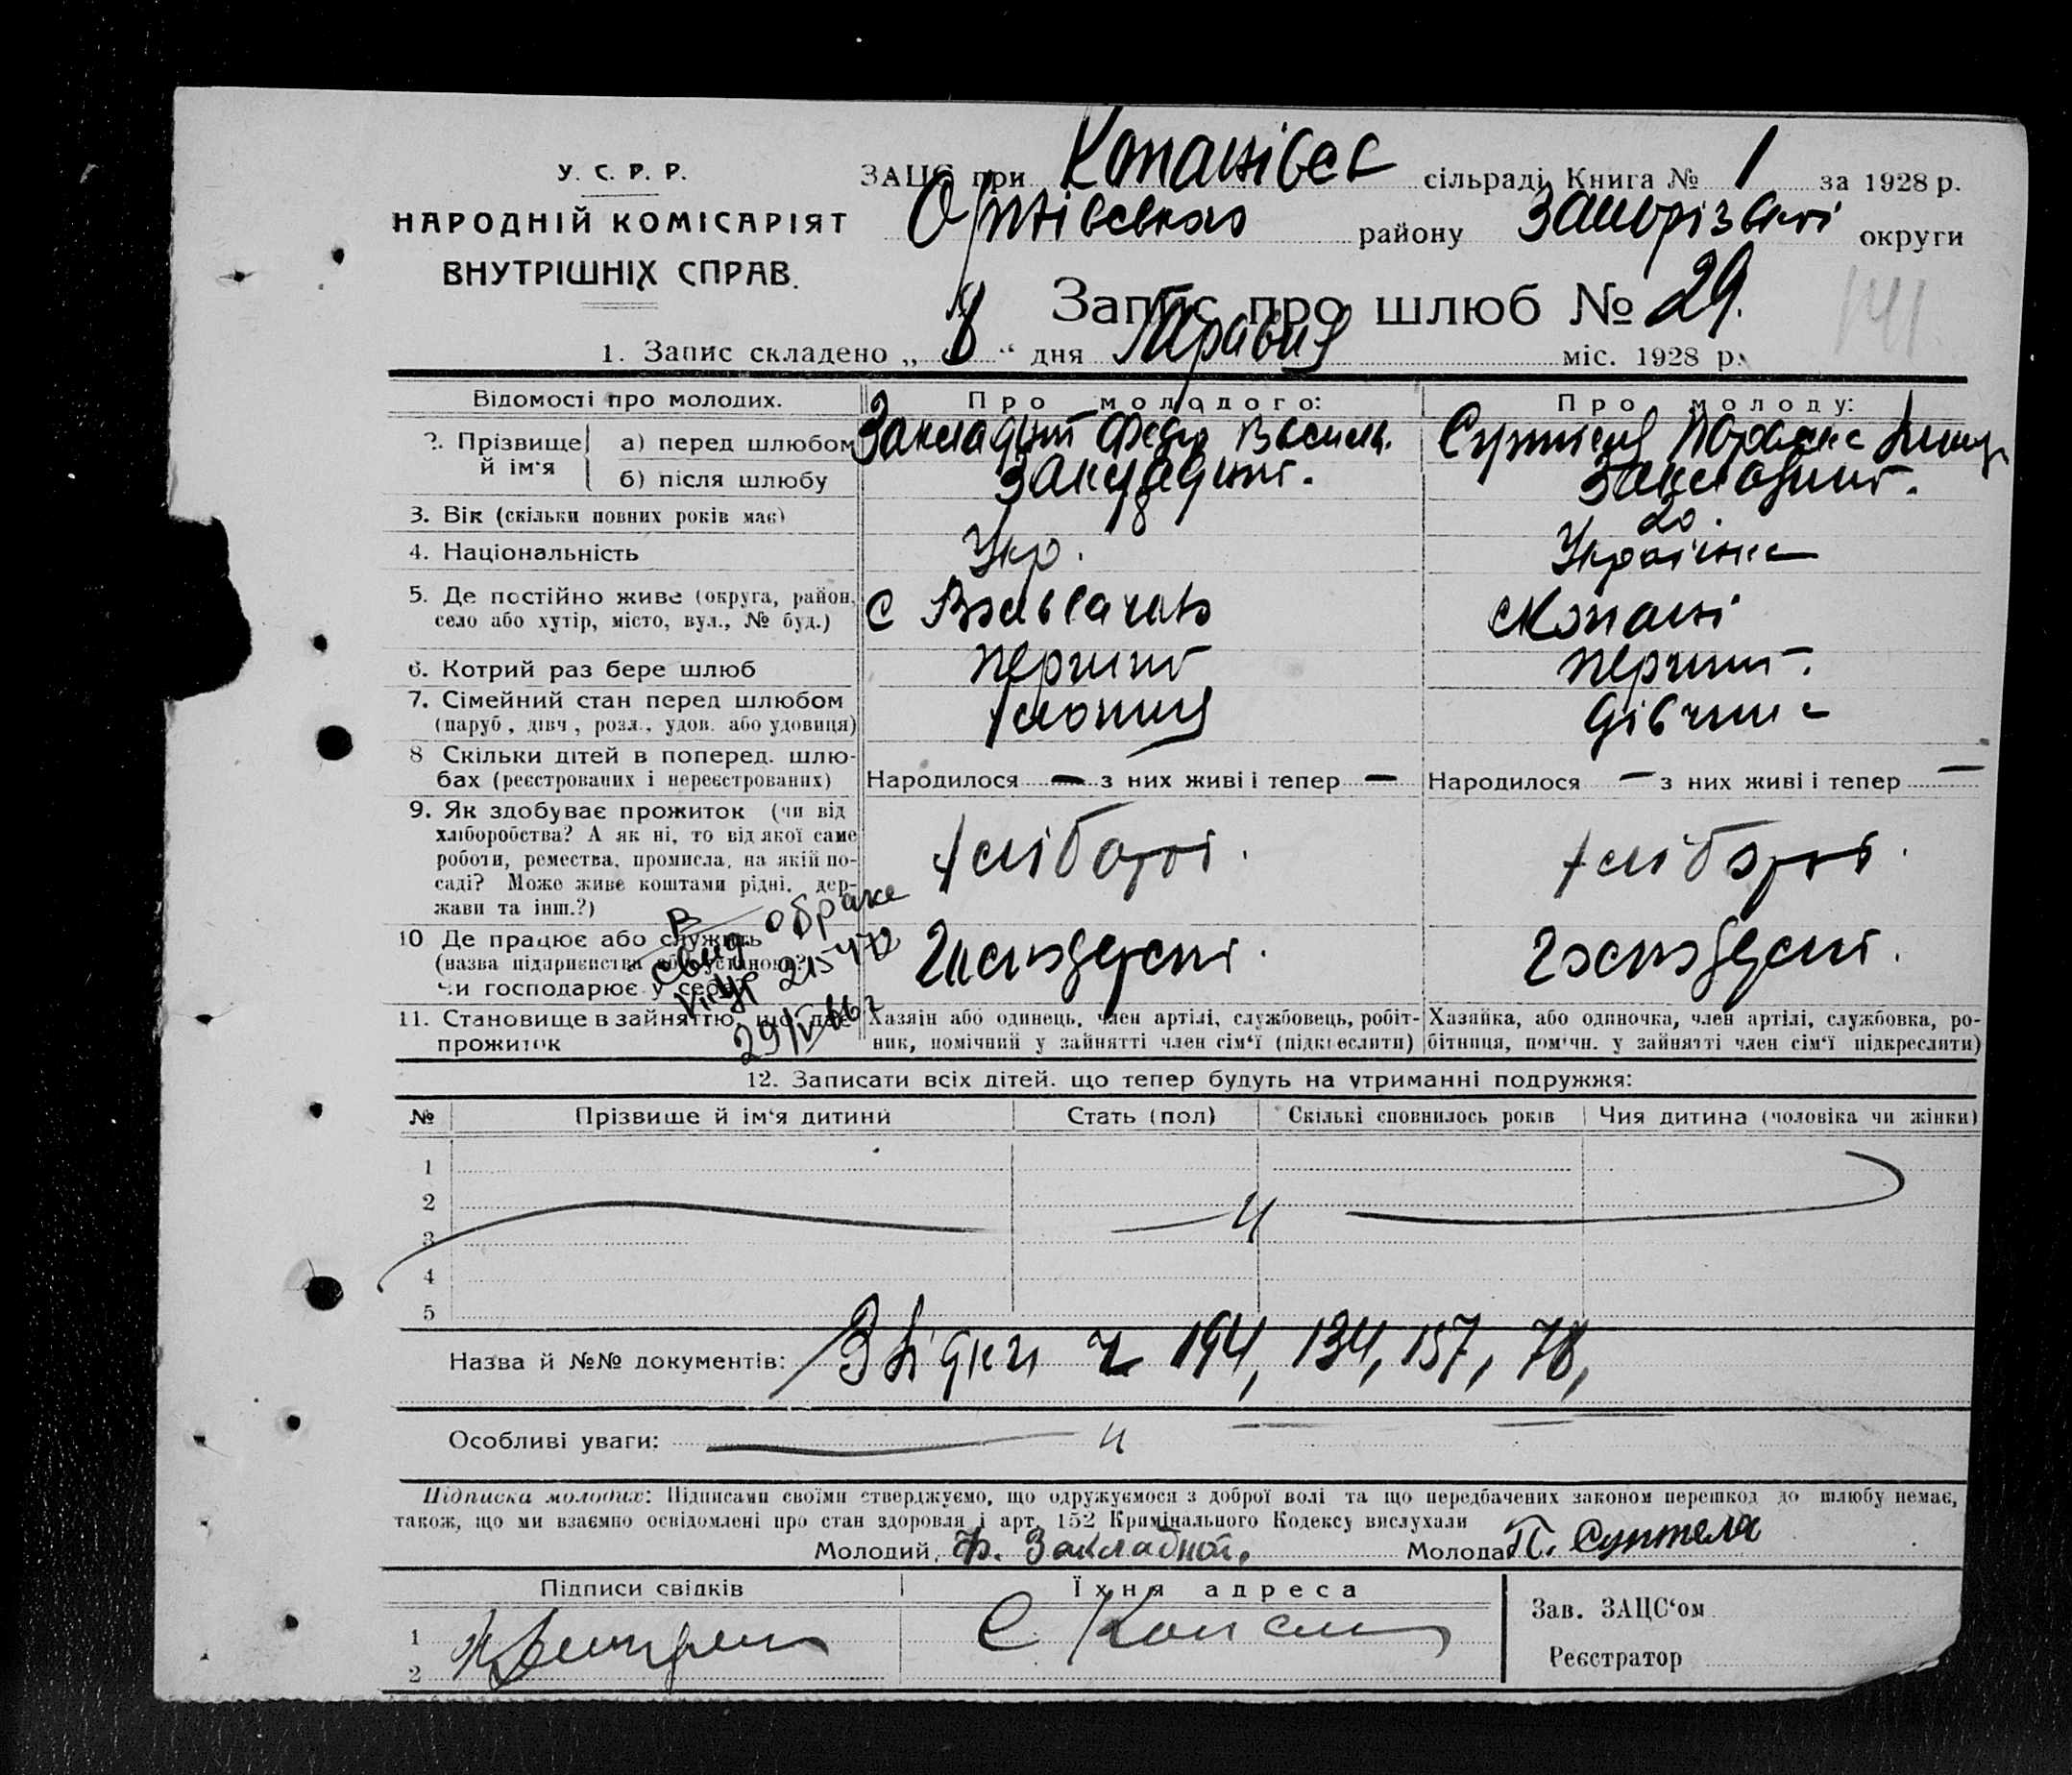 У. С. Р. Р.
НАРОДНІЙ КОМІСАРІЯТ
ВНУТРІШНІХ СПРАВ.
ЗАЦС при Копанівськ сільраді Книга № 1 за 1928 р.
Оріхівського району Запорізької округи
Запис про шлюб № 29.
141
1. Запис складено „ 8 “ дня Травня міс. 1928 р.
Відомості про молодих. Про молодого: Про молоду:
2. Прізвище й ім'я а) перед шлюбом Закладний Федір Василь.
б) після шлюбу Закладний. Закладний.
3. Вік (скільки повних років має) 20.
4. Національність Укр. Українка
5. Де постійно живе (округа, район, село або хутір, місто, вул., № буд.) с Копані
6. Котрий раз бере шлюб перший перший.
7. Сімейний стан перед шлюбом (паруб, дівч, розл., удов. або удовиця) хлопиць дівчина
8 Скільки дітей в поперед. шлюбах (реєстрованих і нереєстрованих) Народилося — з них живі і тепер — Народилося — з них живі і тепер —
9. Як здобуває прожиток (чи від хліборобства? А як ні, то від якої саме роботи, ремества, промисла, на якій посаді? Може живе коштами рідні, держави та інш.?) хлібороб. хлібороб.
10 Де працює або служить (назва підприємства або установи? Чи господарює у себе)
В
свид о браке
29/V 66 г
11. Становище в зайняттю, що дає прожиток Хазяін або одинець, член артілі, службовець, робітник, помічний у зайнятті член сім'ї (підкреслити) Хазяйка, або одиночка, член артілі, службовка, робітниця, помічн. у зайнятті член сім'ї підкреслити)
12. Записати всіх дітей. що тепер будуть на утриманні подружжя:
№ Прізвище й ім'я дитини Стать (пол) Скількі сповнилось років Чия дитина (чоловіка чи жінки)
1
2
3
4
5
Назва й №№ документів: Звідки ч 194, 134, 157, 78,
Особливі уваги:
Підписка молодих: Підписами своїми стверджуємо, що одружуємося з доброї волі та що передбачених законом перешкод до шлюбу немає,
також, що ми взаємно освідомлені про стан здоровля і арт. 152 Кримінального Кодексу вислухали
Молодий, Ф. Закладной. Молода П. Суптеля
Підписи свідків Їхня адреса Зав. ЗАЦС'ом
1 С. Копани
2 Реєстратор